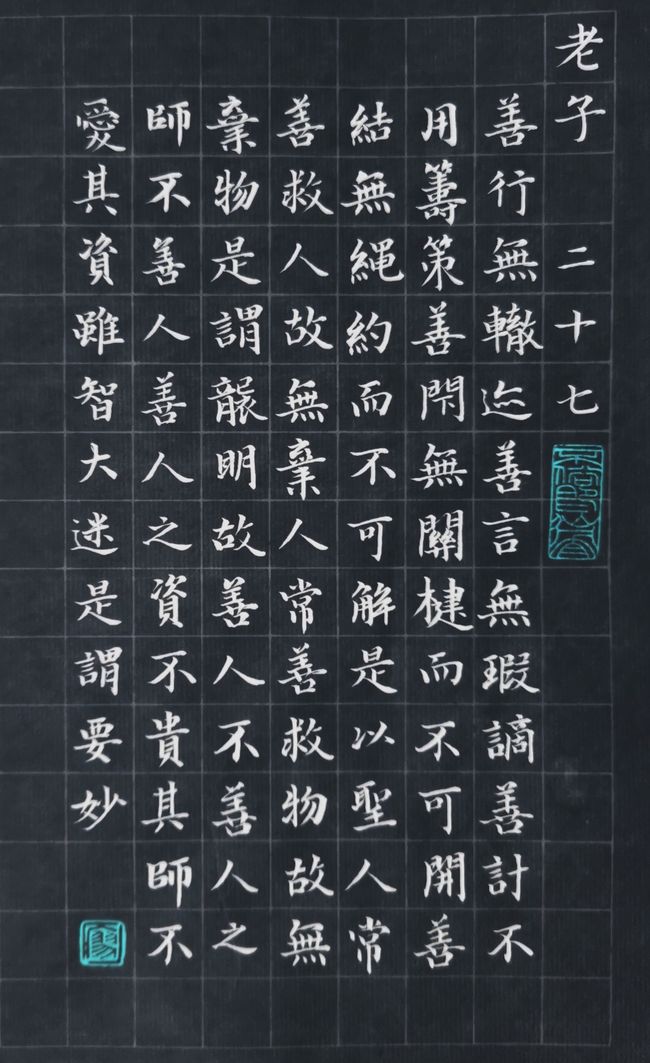 老子 二十七
善行無轍迹善言無瑕謫善計不
用籌策善閇無關楗而不可開善
結無繩約而不可解是以聖人常
善救人故無棄人常善救物故無
棄物是謂襲明故善人不善人之
師不善人善人之資不貴其師不
愛其資雖智大迷是謂要妙